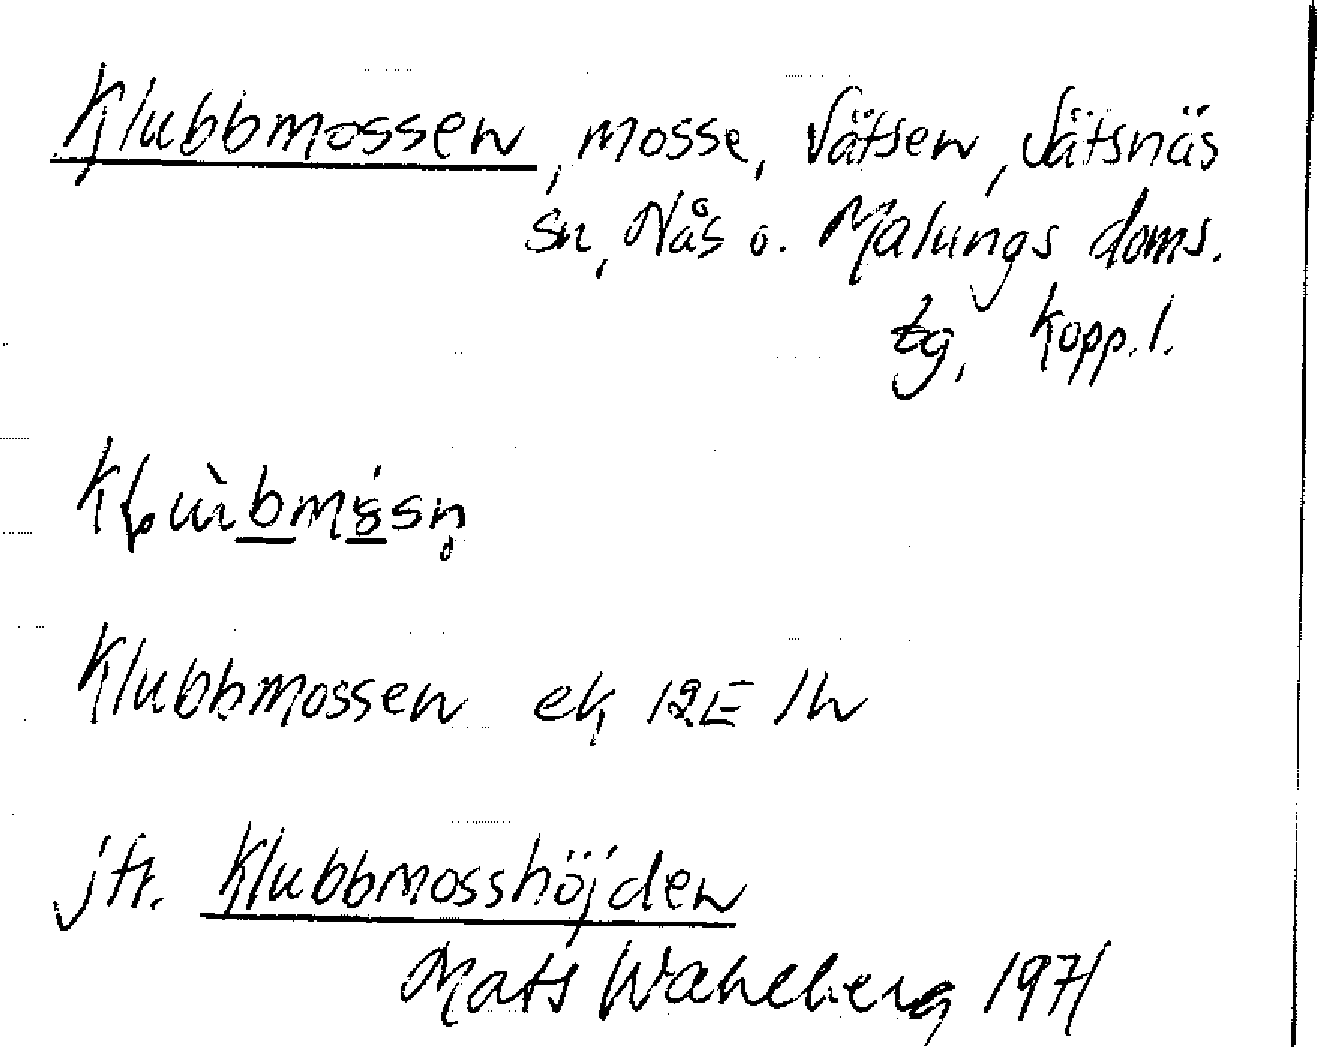 Klubbmossen, mosse, Vätsen, Jätsnäs
sn, Nås o. Malungs doms.
tg, Kopp. l.
Klubbmossen ek 12E 1h
jfr. Klubbmosshöjden
Mats Wahlberg 1971